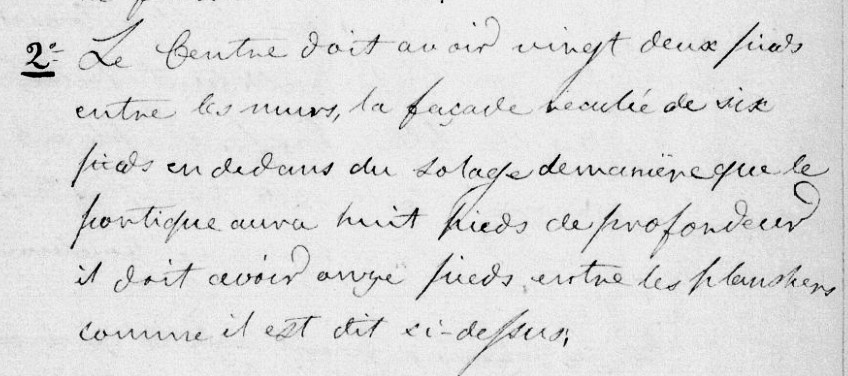 2.° Le Centre doit avoir vingt deux pieds
entre les murs, la façade reculée de six
pieds en dedans du solage de manière que le
portique aura huit pieds de profondeur
il doit avoir onze pieds entre les planchers
comme il est dit ci-dessus;